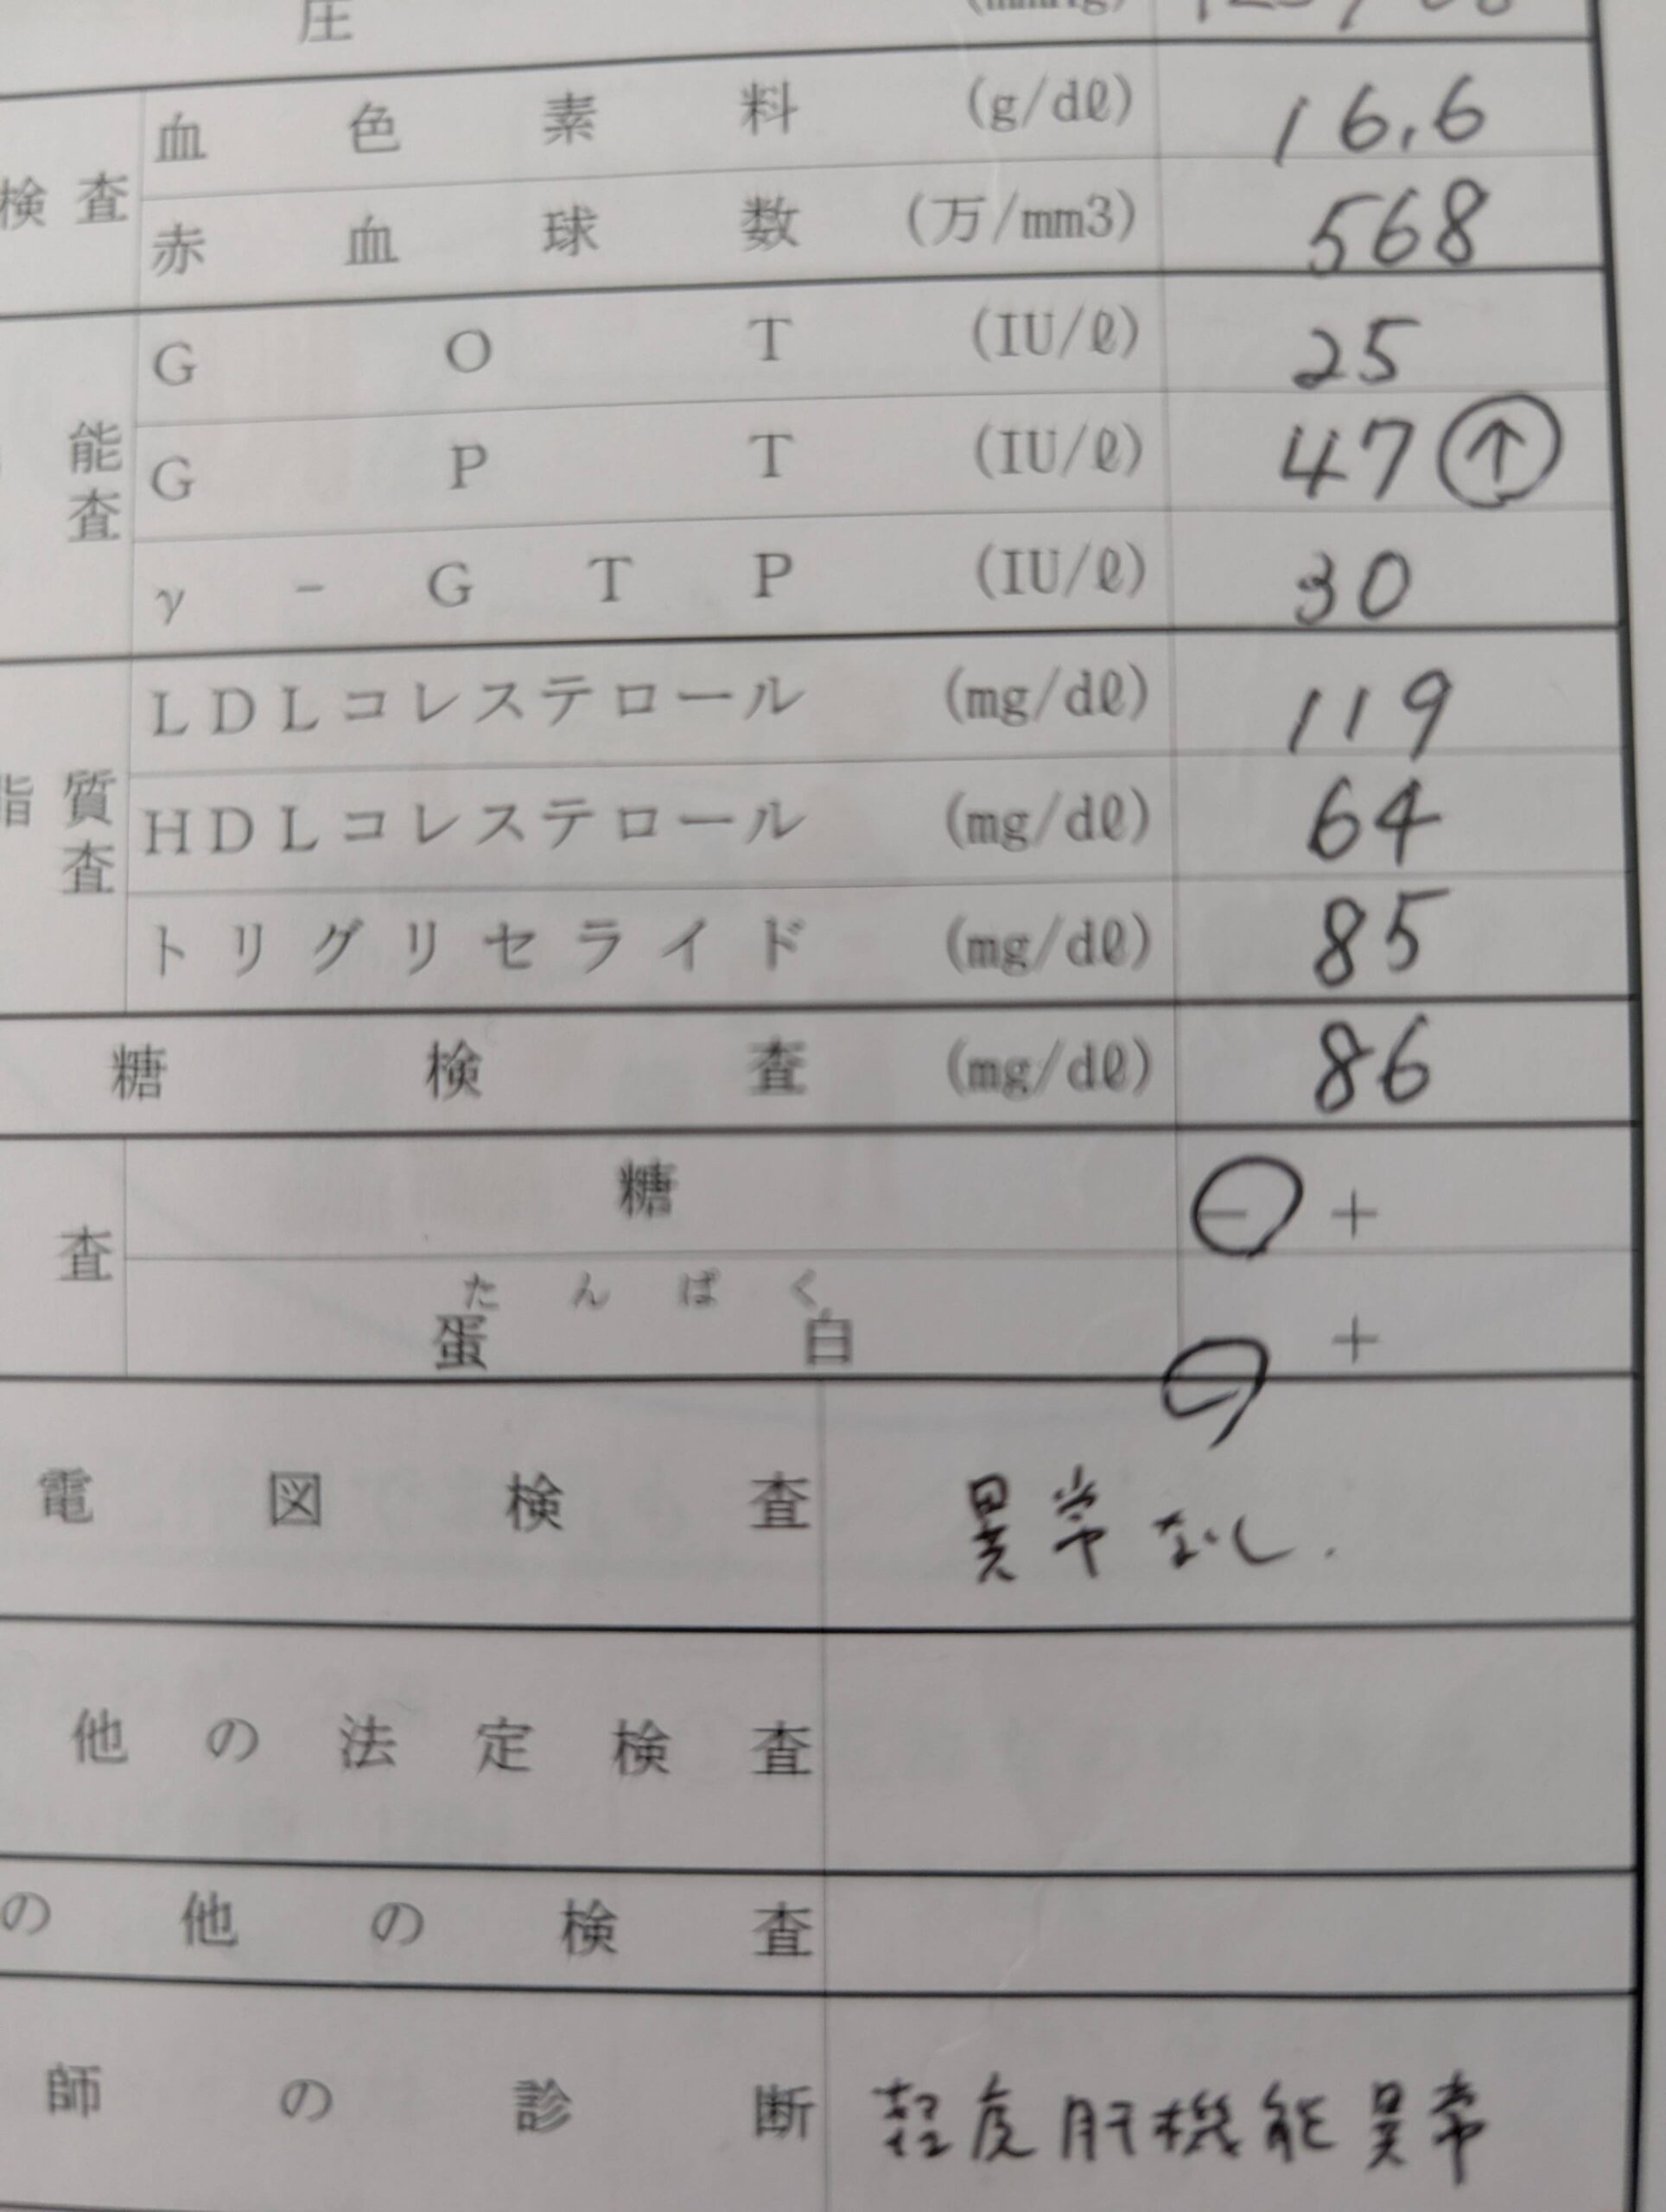 圧
血色素料 (g/dℓ) 16.6
検査
赤血球数 (万/mm3) 568
GOT (IU/ℓ) 25
能
GPT (IU/ℓ) 47 ↑
査
γ-GTP (IU/ℓ) 30
LDLコレステロール (mg/dℓ) 119
脂質
HDLコレステロール (mg/dℓ) 64
査
トリグリセライド (mg/dℓ) 85
糖検査 (mg/dℓ) 86
糖 − +
査
たんぱく
蛋白 − +
電図検査 異常なし.
他の法定検査
の他の検査
師の診断 軽度肝機能異常